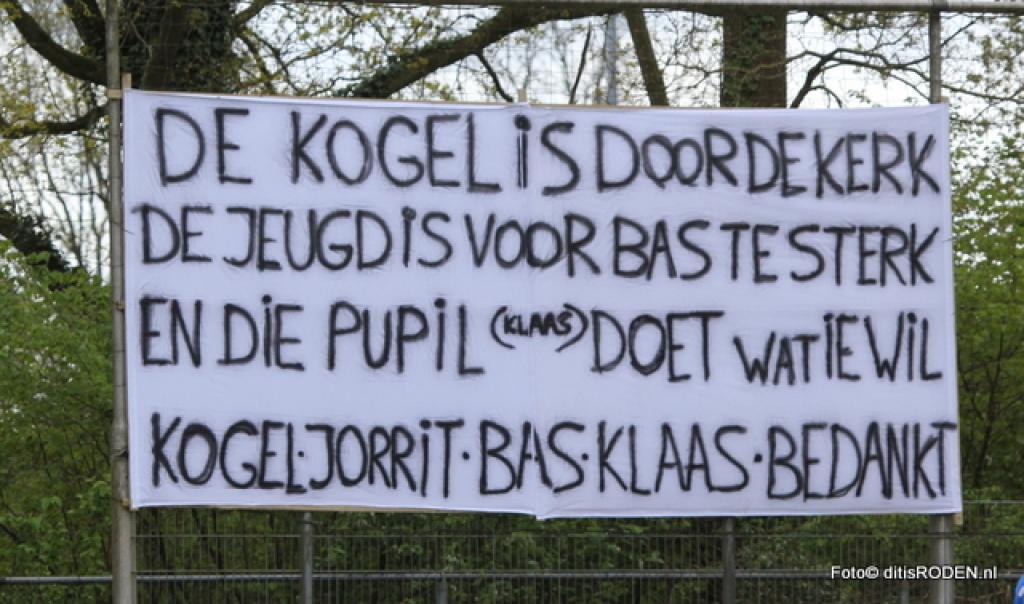 DE KOGEL iS DOOR DE KERK
DE JEUGD iS VOOR BAS TE STERK
EN DiE PUPiL (KLAAS) DOET WAT iE WiL
KOGEL·JORRiT·BAS·KLAAS·BEDANKT
Foto© ditisRODEN.nl